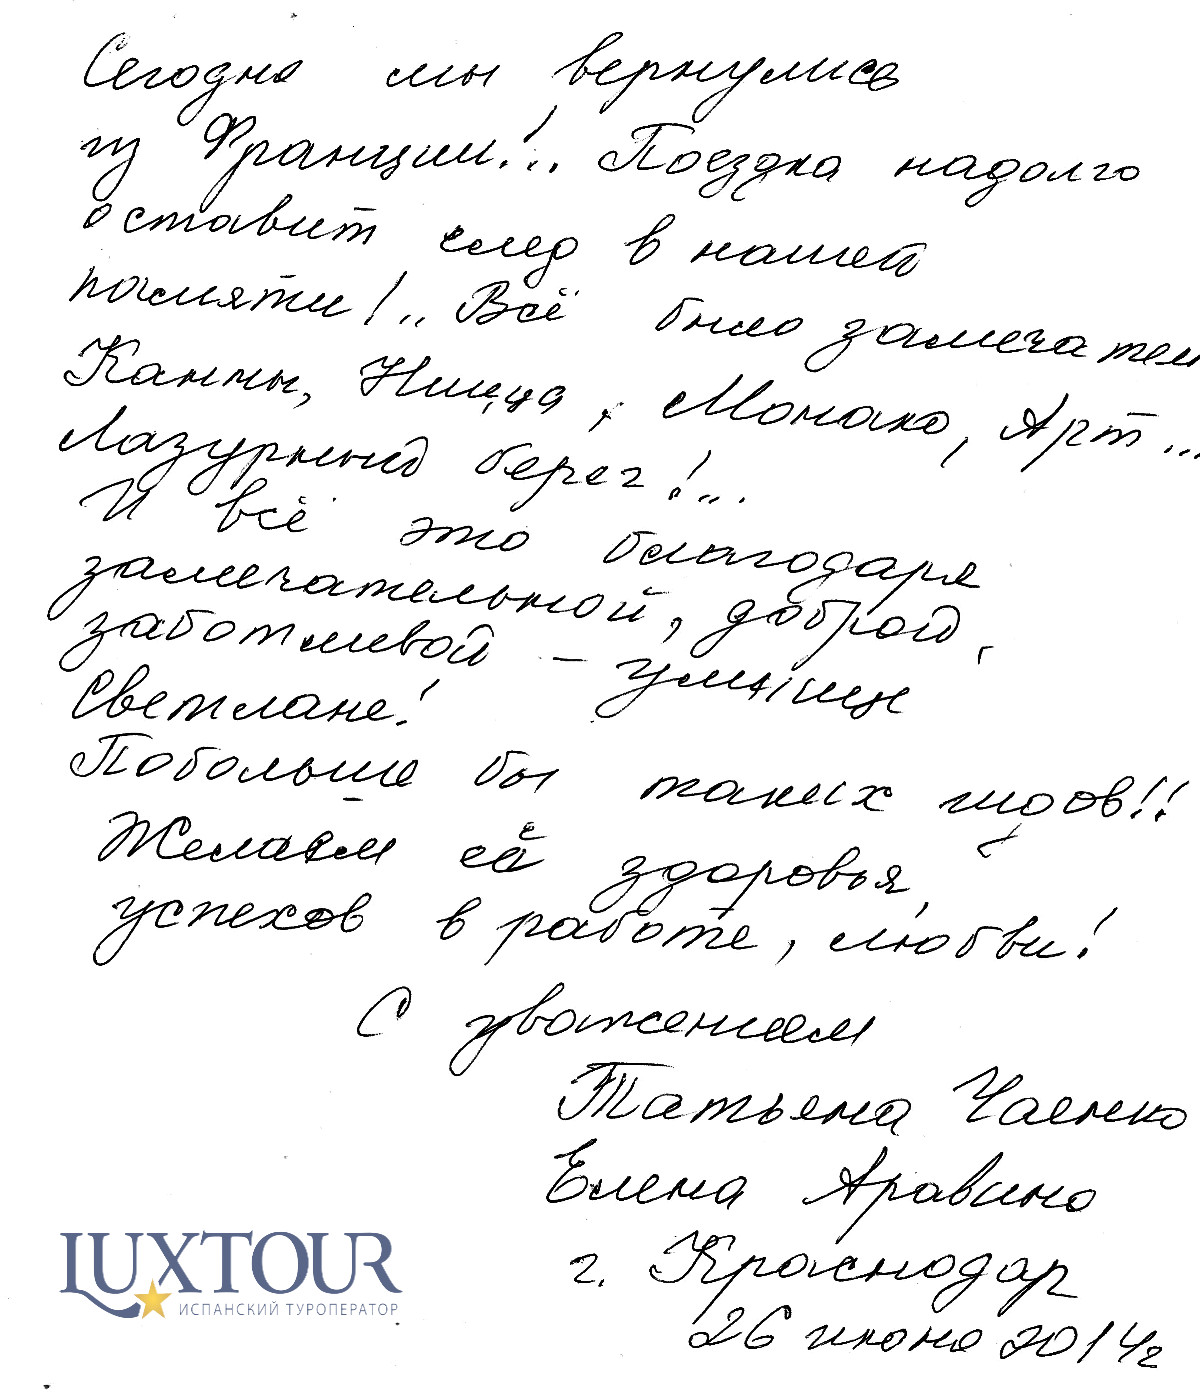 Сегодня мы вернулись
из Франции!.. Поездка надолго
оставит след в нашей
памяти!.. Всё было замечател
Канны, Ницца, Монако, Арт...
Лазурный берег!...
И всё это благодаря
замечательной, доброй,
заботливой – умнице
Светлане!
Побольше бы таких гидов!!
Желаем ей здоровья,
успехов в работе, любви!
С уважением
Татьяна Чаенко
Елена Аравина
г. Краснодар
26 июня 2014г
LUXTOUR
ИСПАНСКИЙ ТУРОПЕРАТОР